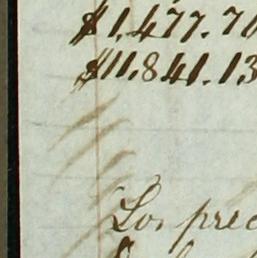 $1,477.70
$11.841.13
Los prec